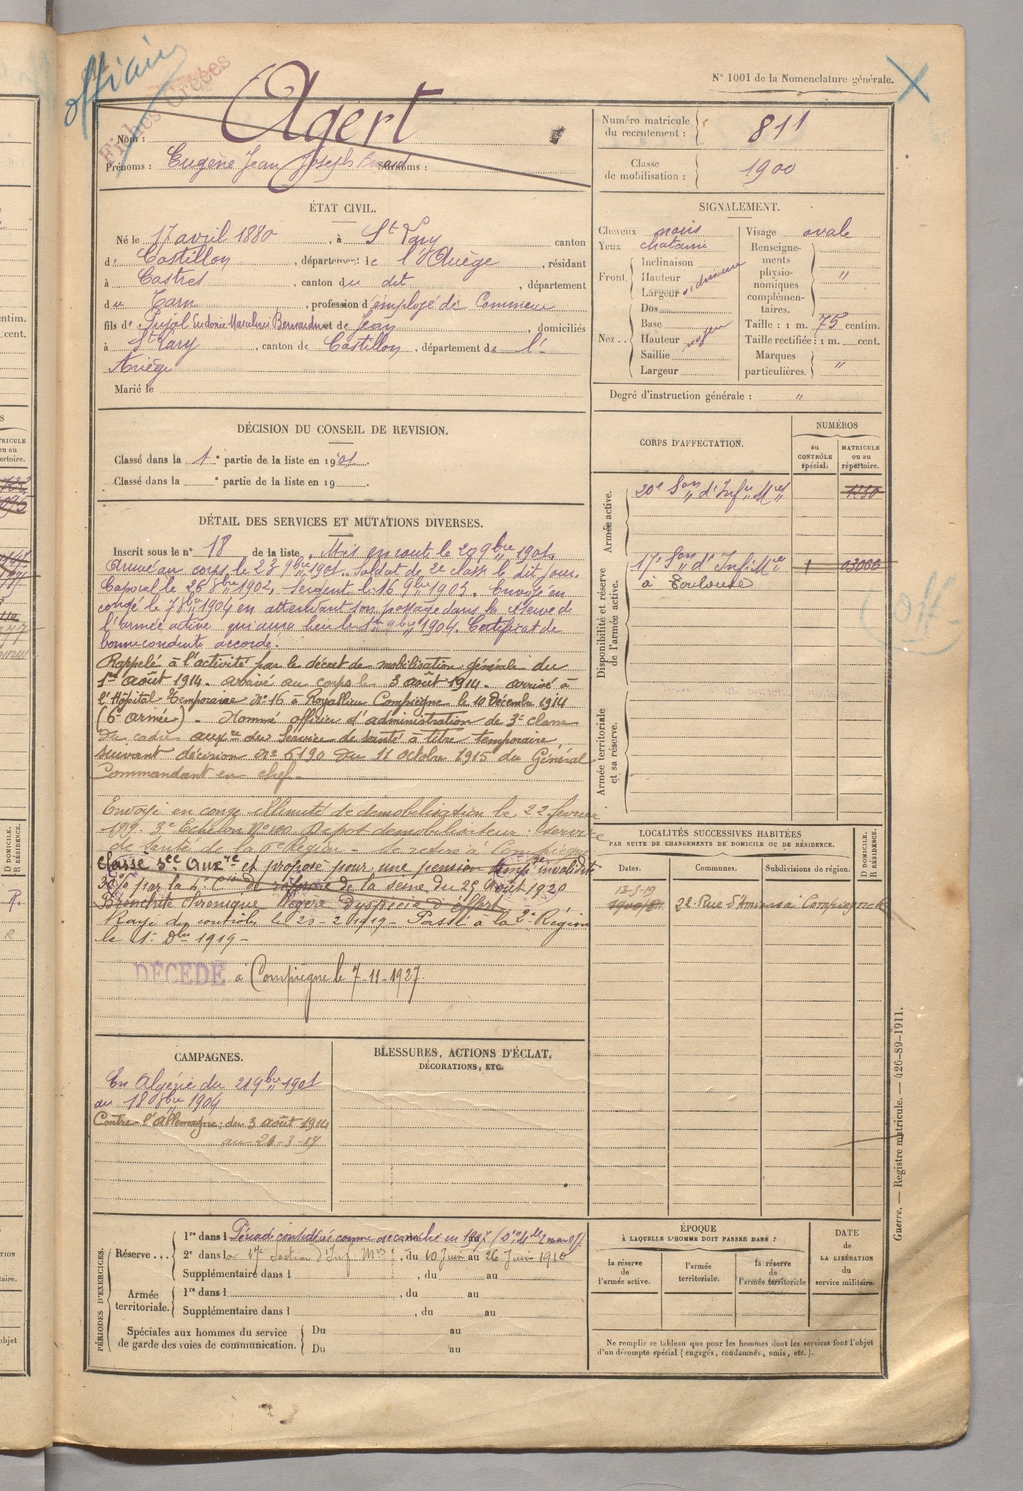 officier
Fiches Créées
N° 1001 de la Nomenclature générale.
Agert
Nom :
Prénoms : Eugène Jean Joseph Surnoms :
Numéro matricule du recrutement : 811
Classe de mobilisation : 1900
ÉTAT CIVIL.
Né le 17 avril 1880, à St Lary canton
de Castillon, département de l'Ariège, résidant
à Castres, canton du dit, département
du Tarn, profession d'employé de Commerce
fils de Pujol Eudoxie Marceline Bernardine et de Jean, domiciliés
à St Lary, canton de Castillon, département de l'
Ariège
Marié le
SIGNALEMENT.
Cheveux noirs
Yeux chatains
Front. Inclinaison
Hauteur
Largeur
Nez. Dos
Base
Hauteur
Saillie
Largeur
Visage ovale
Renseignements physionomiques complémentaires. "
Taille : 1 m. 75 centim.
Taille rectifiée : 1 m. cent.
Marques particulières. "
Degré d'instruction générale : "
DÉCISION DU CONSEIL DE REVISION.
Classé dans la 1e partie de la liste en 1901.
Classé dans la e partie de la liste en 19
DÉTAIL DES SERVICES ET MUTATIONS DIVERSES.
Inscrit sous le n° 18 de la liste. Mis en route le 20 9bre 1901.
Arrivé au corps le 23 9bre 1901. Soldat de 2e classe le dit jour.
Caporal le 26 8bre 1902. Sergent le 16 9bre 1903. Envoyé en
congé le 18 8bre 1904 en attendant son passage dans la réserve de
l'armée active qui aura lieu le 1er 9bre 1904. Certificat de
bonne conduite accordé.
Rappelé à l'activité par le décret de mobilisation générale du
1er Août 1914. arrivé au corps le 3 août 1914. arrivé à
l'Hôpital Temporaire N° 16 à Royallieu Compiègne le 10 Décembre 1914
(6e armée). Nommé officier d'administration de 3e classe
du cadre auxre du Service de santé à titre temporaire,
suivant décision No 6190 du 11 octobre 1915 du Général
Commandant en chef.
Envoyé en congé illimité de démobilisation le 22 février
1919. 3e Echelon No 100 Dépot démobilisateur : Service
de santé de la Région - Se retire à Compiègne
Classé Sce Auxre et proposé pour une pension tempe invalidité
par la 4e Con de réforme de la Seine du 25 Août 1920
Bronchite chronique légère Dyspnée d'effort
Rayé des controles le 20-2-1919 - Passé à la 2e Région
le 1er Dbre 1919 -
DÉCÉDÉ à Compiègne le 7-11-1927.
CORPS D'AFFECTATION.
NUMÉROS
au CONTRÔLE spécial.
MATRICULE ou au répertoire.
Armée active.
20e Son d'Infers Mres
1230
Disponibilité et réserve de l'armée active.
17e Son d'Inf. Mres 1 03006
à Toulouse
Off.
Armée territoriale et sa réserve.
LOCALITÉS SUCCESSIVES HABITÉES
PAR SUITE DE CHANGEMENTS DE DOMICILE OU DE RÉSIDENCE.
Dates.
Communes.
Subdivisions de région.
D DOMICILE. R RÉSIDENCE.
13-5-19
22 Rue d'Amiens à Compiègne R
CAMPAGNES.
En Algérie du 21 9bre 1901
au 18 8bre 1904
Contre l'Allemagne : du 3 août 1914
BLESSURES, ACTIONS D'ÉCLAT,
DÉCORATIONS, ETC.
PÉRIODES D'EXERCICES.
Réserve...
1re dans l Période considérée comme accomplie en 1907
2e dans la 17e Section d'Inf. Mres, du 10 Juin au 26 Juin 1910
Supplémentaire dans l , du au
Armée territoriale.
1re dans l , du au
Supplémentaire dans l , du au
Spéciales aux hommes du service de garde des voies de communication.
Du au
Du au
ÉPOQUE
À LAQUELLE L'HOMME DOIT PASSER DANS :
la réserve de l'armée active.
l'armée territoriale.
la réserve de l'armée territoriale
DATE de LA LIBÉRATION du service militaire.
Ne remplir ce tableau que pour les hommes dont les services font l'objet
d'un décompte spécial (engagés, condamnés, omis, etc.).
Guerre. — Registre matricule. — 426-89-1911.